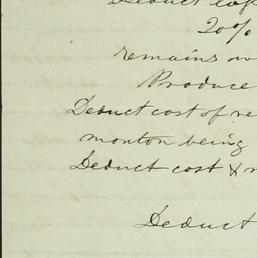 Deduct
20%
remains
Produce
Deduct cost of re
monton being
Deduct cost &
Deduct